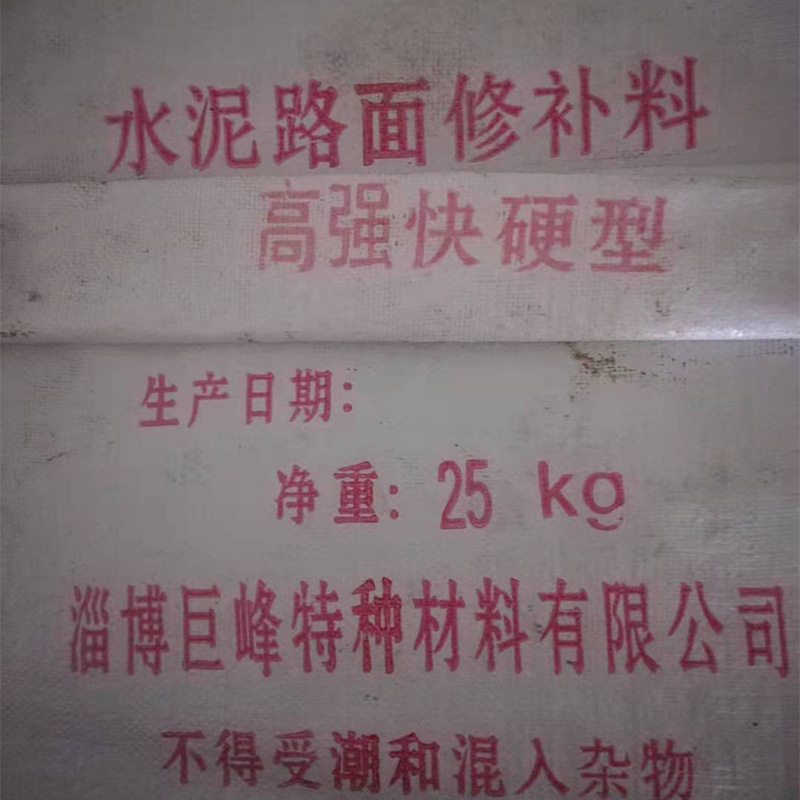 水泥路面修补料
高强快硬型
生产日期:
净重: 25 kg
淄博巨峰特种材料有限公司
不得受潮和混入杂物